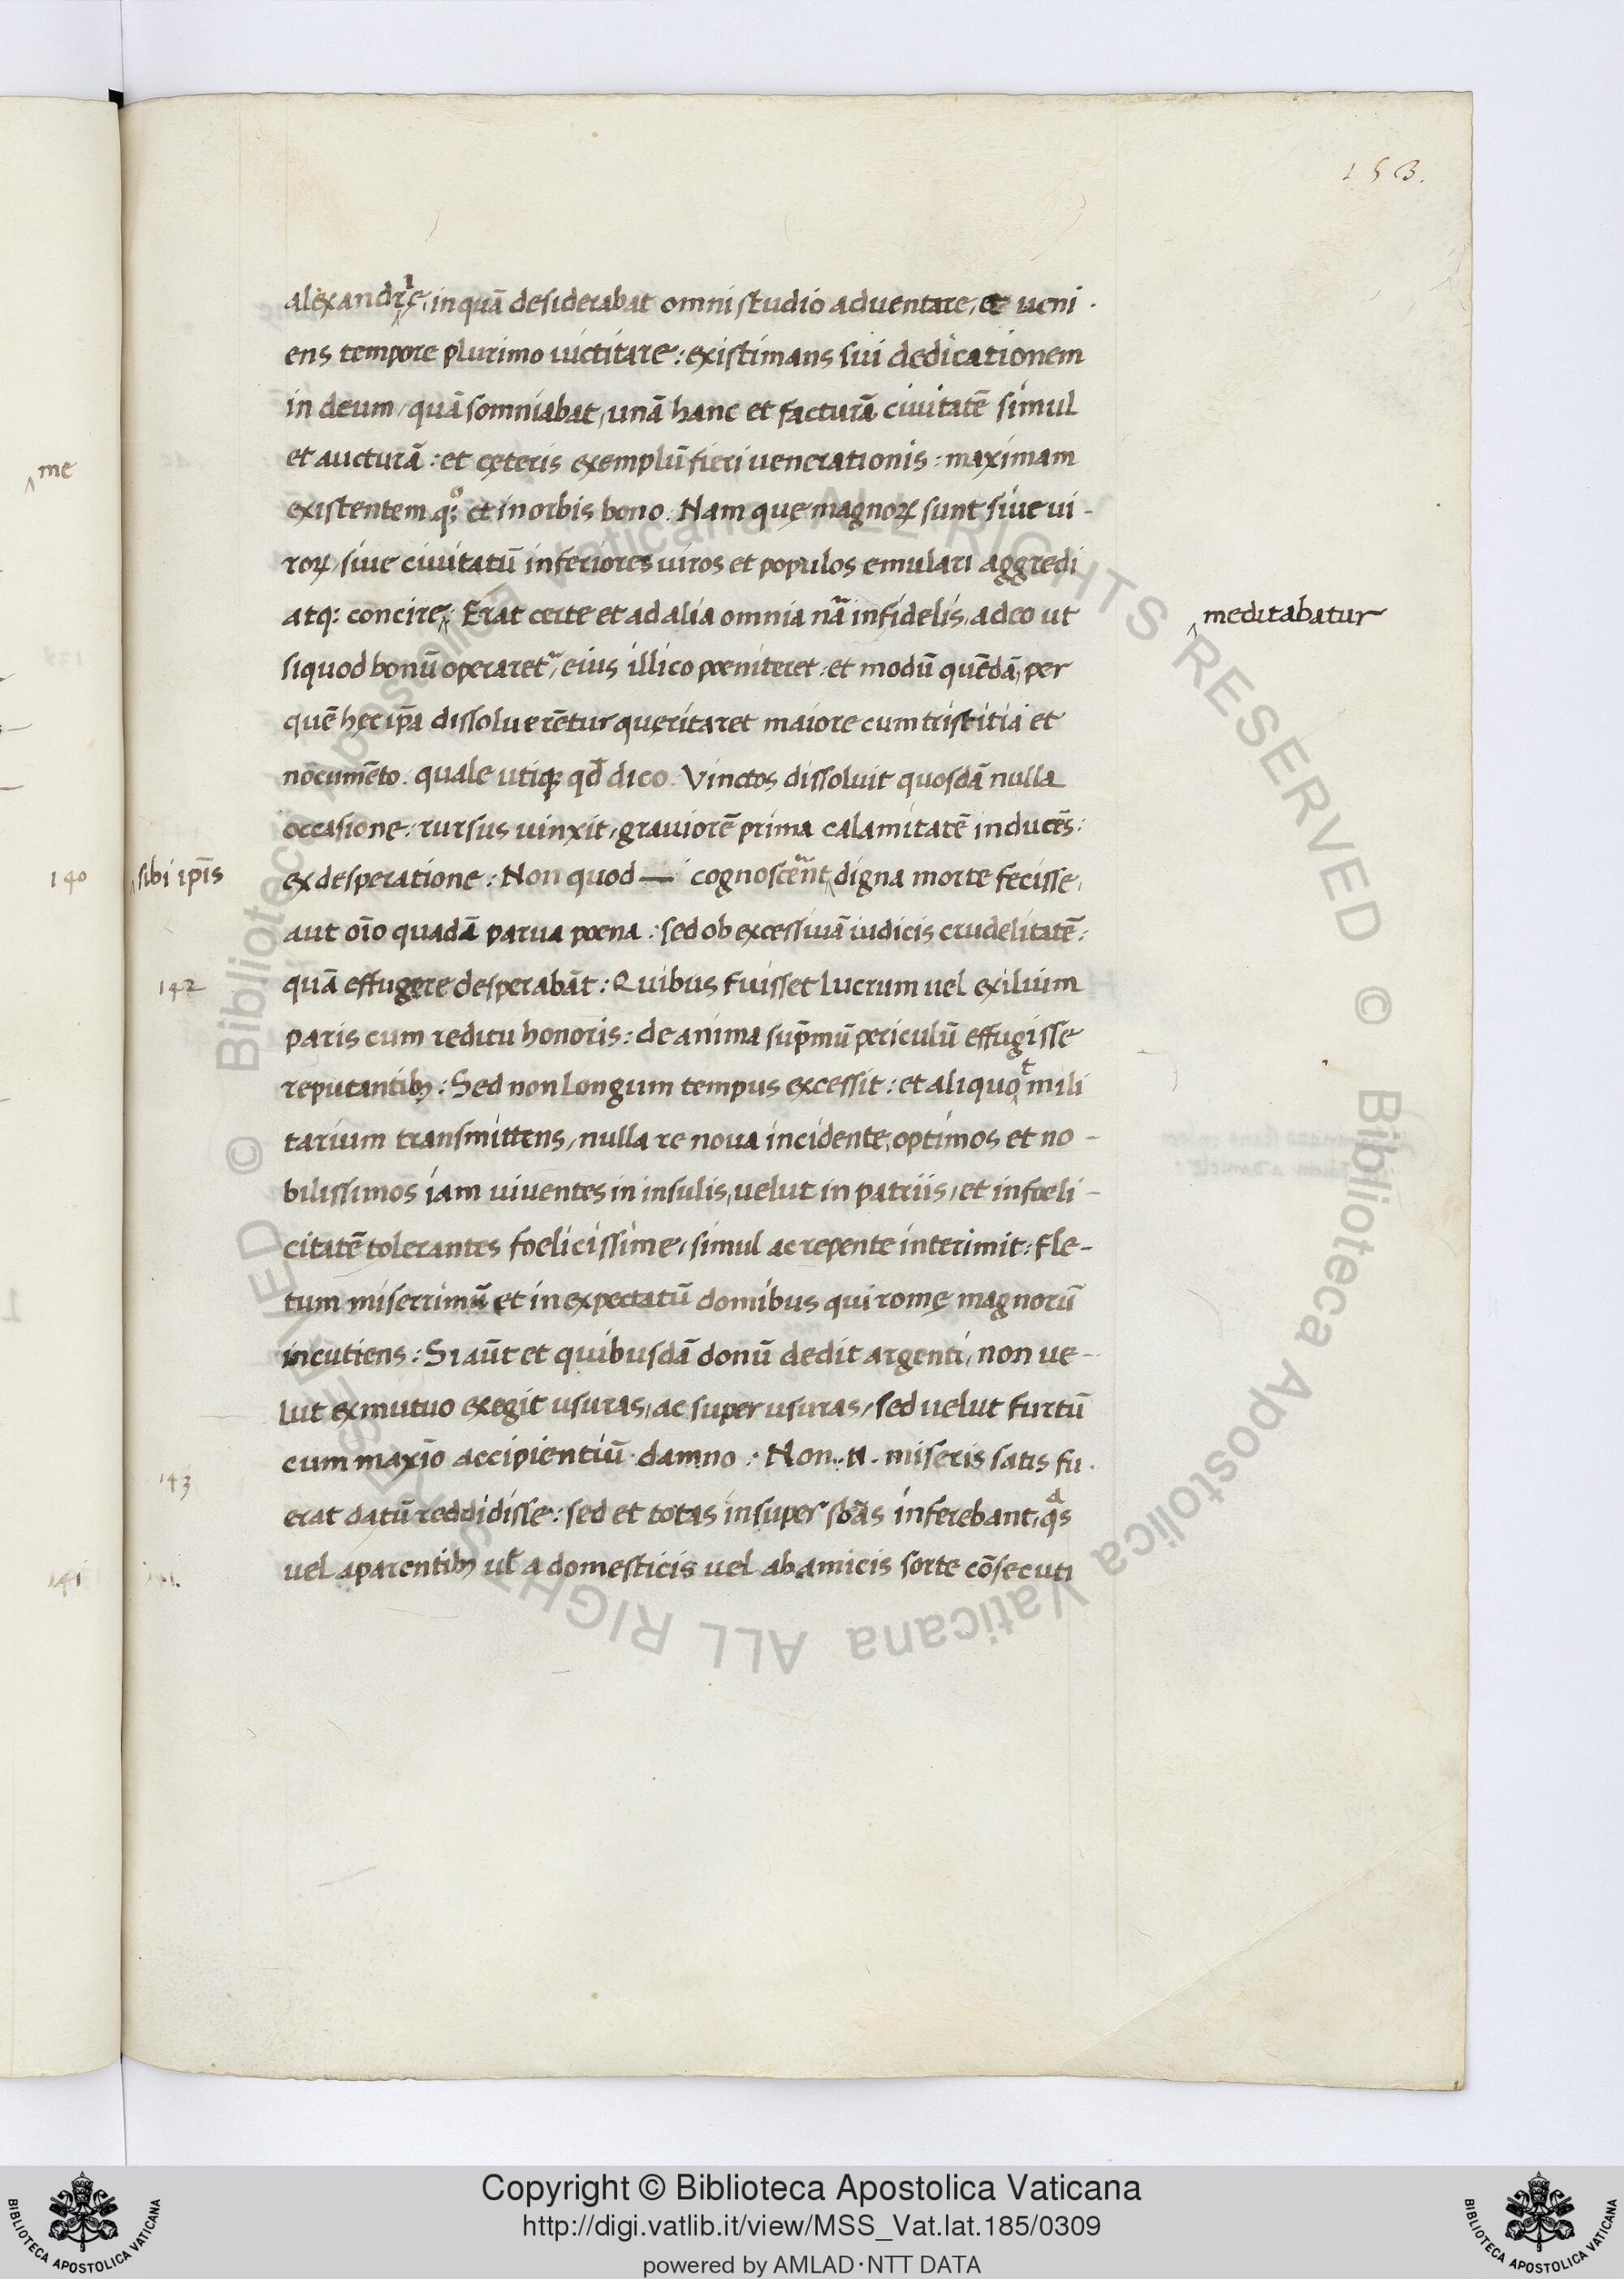 153.
alexandrię, in quā desiderabat omni studio aduentare, et ueni-
ens tempore plurimo uictitare: existimans sui dedicationem
in deum, quā somniabat, unā hanc et facturā ciuitatē simul
et aucturā: et cęteris exemplū fieri uenerationis: maximam
existentem qꝫ et in orbis bono. Nam quę magnoꝝ sunt siue ui-
roꝝ, siue ciuitatū inferiores uiros et populos emulari aggredi
atqꝫ concire: Erat certe et ad alia omnia nā infidelis, adeo ut
meditabatur
siquod bonū operaret᷑, eius illico poeniteret: et modū quēdā, per
quē hęc ip̄a dissoluerētur quęritaret maiore cum tristitia et
nōcumēto. quale utiqꝫ qd̄ dico. Vinctos dissoluit quosdā nulla
occasione: rursus uinxit, grauiorē prima calamitatē inducēs:
140
sibi ip̄is
ex desperatione: Non quod — cognoscerent digna morte fecisse,
aut oīo quadā parua poena: sed ob excessiuā iudicis crudelitatē:
142
quā effugere desperabāt: Quibus fuisset lucrum uel exilium
paris cum reditu honoris: de anima sup̄mū periculū effugisse
reputantibꝫ: Sed non longum tempus excessit: et aliquot mili
tarium transmittens, nulla re noua incidente, optimos et no-
bilissimos iam uiuentes in insulis, uelut in patriis, et infoeli-
citatē tolerantes foelicissime, simul ac repente interimit: fle-
tum miserrimū et inexpectatū domibus qui romę magnorū
incutiens: Si aūt et quibusdā donū dedit argenti, non ue-
lut ex mutuo exegit usuras, ac super usuras, sed uelut furtū
cum maxīo accipientiū damno: Non .n. miseris satis fu-
143
erat datū reddidisse: sed et totas insuper sb̄as inferebant, qas
uel a parentibꝫ ul̄ a domesticis uel ab amicis sorte cōsecuti
141
me
Copyright © Biblioteca Apostolica Vaticana
http://digi.vatlib.it/view/MSS_Vat.lat.185/0309
powered by AMLAD·NTT DATA
BIBLIOTECA APOSTOLICA VATICANA
BIBLIOTECA APOSTOLICA VATICANA
© Biblioteca Apostolica Vaticana ALL RIGHTS RESERVED
© Biblioteca Apostolica Vaticana ALL RIGHTS RESERVED